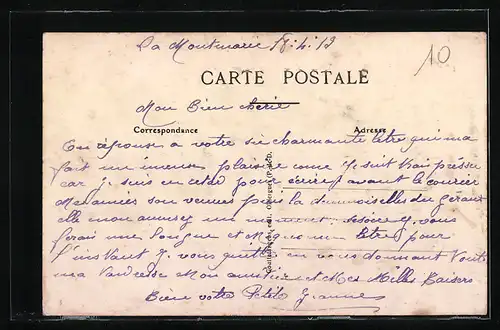 La Montmarie 17.4.13
10
CARTE POSTALE
Mon Bien chérie
Correspondance Adresse
En réponse a votre si charmante letre qui ma
fait un imense plaisire come je suit trais préssée
car je suis en retar pour écrire avant le courier
Mesdames son venues pas la demoiselles du gérant
elle mon amusez un moment. se soire je vous
ferai une longue et Mignonne letre pour
l'instant je vous quitte en vous donnant toute
ma tendresse Mon amitier et Mes Milles Baisers
Bien votre Petite Jeanne